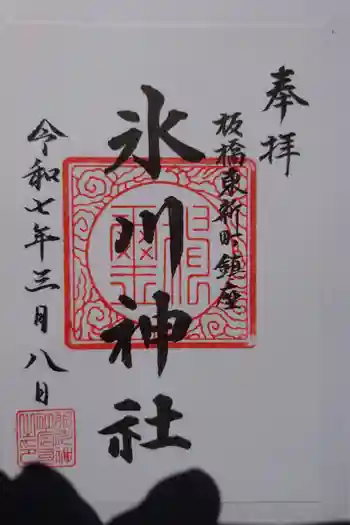 奉拝
板橋東新町鎮座
氷川神社
令和七年三月八日